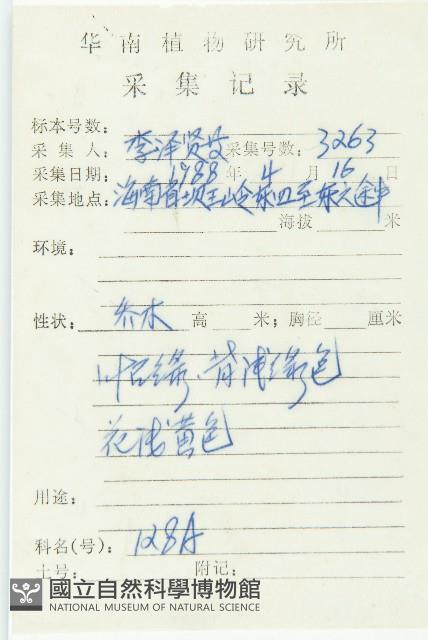 华南植物研究所
采集记录
标本号数:
采集人: 李泽贤 采集号数: 3263
采集日期: 1988 年 4 月 16 日
采集地点: 海南省坝王岭东四至东六途中
海拔 米
环境:
性状: 乔木 高 米; 胸径 厘米
叶绿, 背浅绿色
花浅黄色
用途:
科名(号): 128A
土号: 附记:
國立自然科學博物館
NATIONAL MUSEUM OF NATURAL SCIENCE